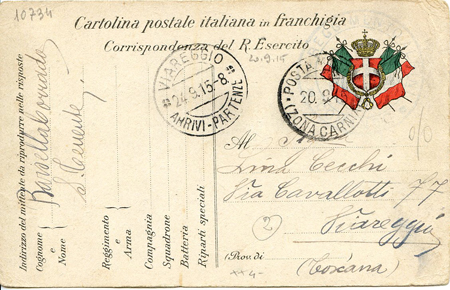 10734
Cartolina postale italiana in franchigia
Corrispondenza del R. Esercito
20.9.15
VIAREGGIO
* 24.9.15-8 *
ARRIVI-PARTENZE
POSTA
20.9.15
(ZONA CARNIA)
Al
Cecchi
Via Cavallotti 77
Viareggio
(Prov. di
(Toscana)
2
Indirizzo del mittente da riprodurre nelle risposte
Cognome e Nome
Reggimento e Arma
Compagnia
Squadrone
Batteria
Riparti speciali